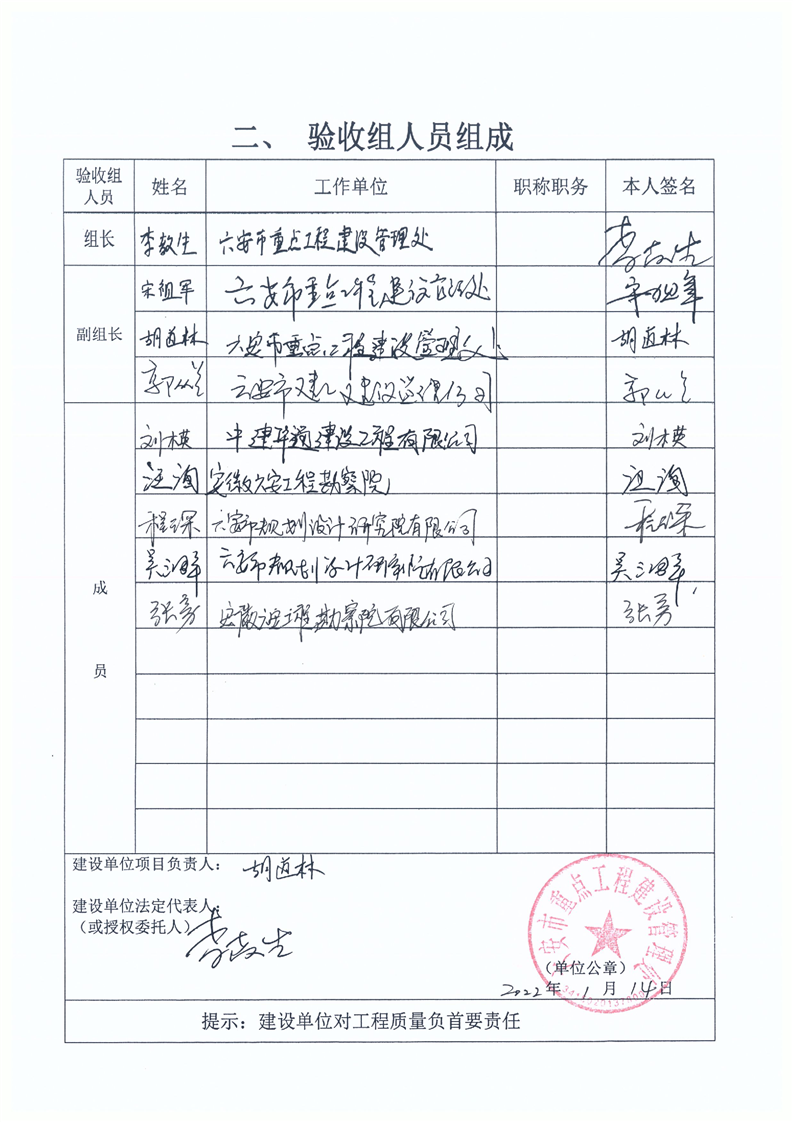 二、 验收组人员组成
验收组人员 姓名 工作单位 职称职务 本人签名
组长 李敦生 六安市重点工程建设管理处
宋祖军 六安市重点工程建设管理处 宋祖军
副组长 胡道林 六安市重点工程建设管理处 胡道林
六安市建工建设监理公司
刘模英 中建华通建设工程有限公司 刘模英
汪洵 安徽六安工程勘察院 汪洵
程琛 六安市规划设计研究院有限公司 程琛
六安市规划设计研究院有限公司
张勇 安徽工程勘察院有限公司 张勇
成员
建设单位项目负责人: 胡道林
建设单位法定代表人:
(或授权委托人)
六安市重点工程建设管理处
(单位公章)
2022年 1 月 14日
提示:建设单位对工程质量负首要责任